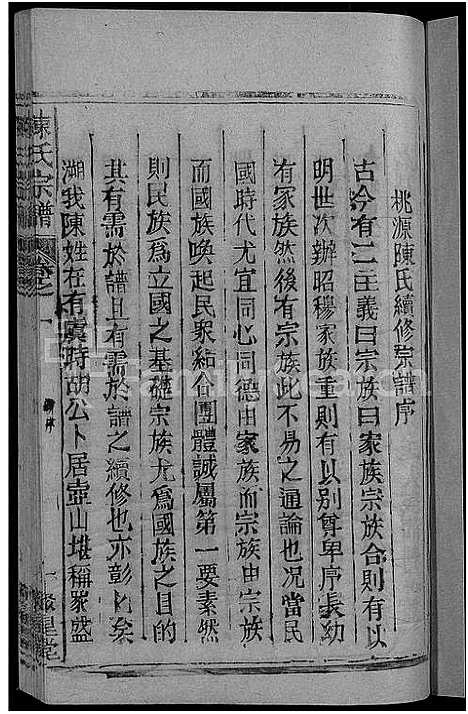 桃源陳氏續修宗譜序
古今有二主義曰宗族曰家族宗族合則有以
明世次辦昭穆家族重則有以別尊卑序長幼
有家族然後有宗族此不易之通論也況當民
國時代尤宜同心同德由家族而宗族由宗族
而國族喚起民眾結合團體誠屬第一要素然
則民族為立國之基礎宗族尤為國族之目的
其有需於譜且有需於譜之續修也亦彰彰矣
溯我陳姓在有虞時胡公卜居壺山堪稱眾盛
陳氏宗譜
卷之一